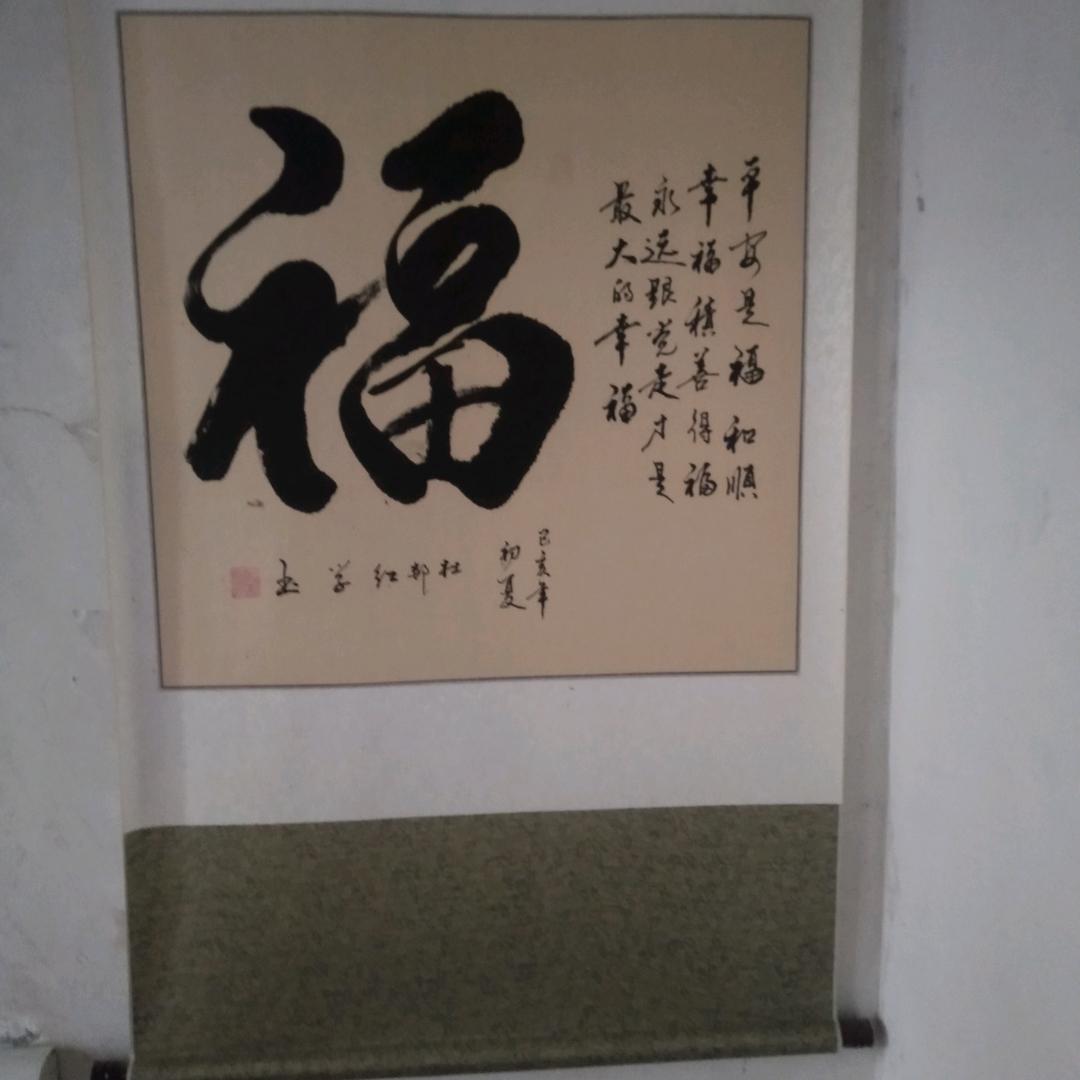 福
平安是福和順
幸福積善得福
永远跟党走才是
最大的幸福
己亥年
初夏
杜郁红学玉